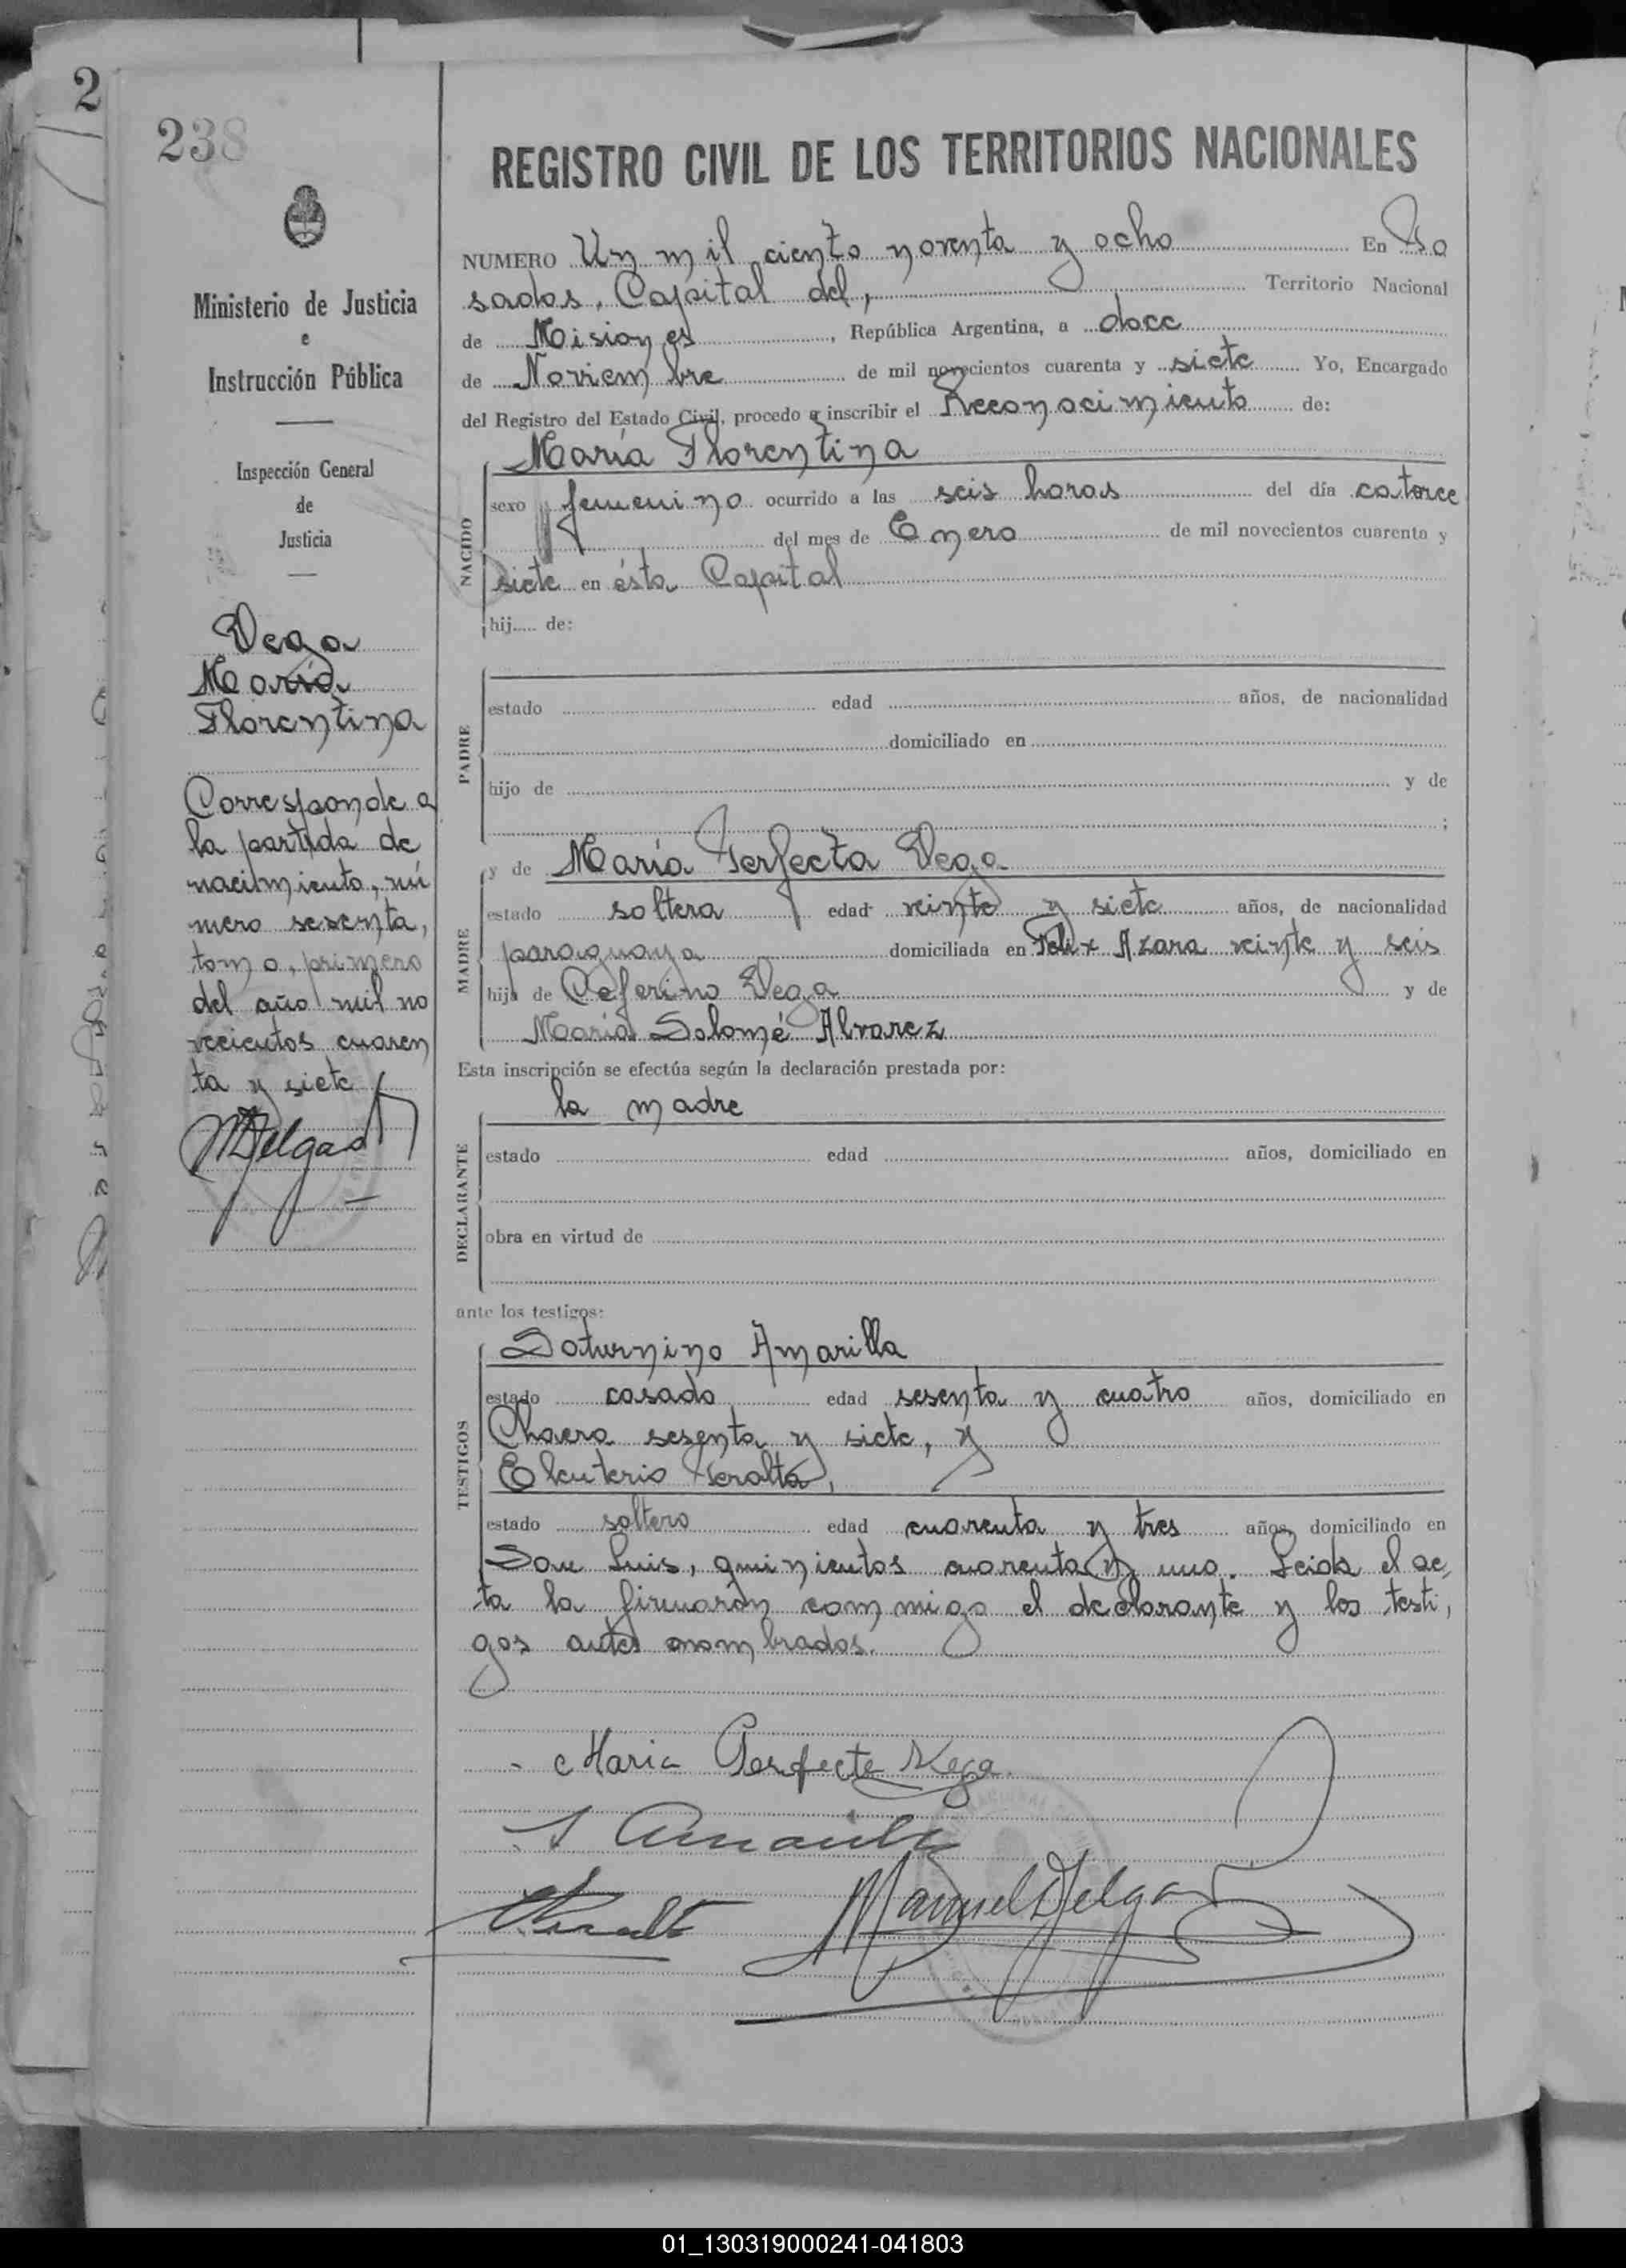 2
238
REGISTRO CIVIL DE LOS TERRITORIOS NACIONALES
Ministerio de Justicia
e
Instrucción Pública
Inspección General
de
Justicia
Vega
María
Florentina
Corresponde a
la partida de
nacimiento, nú
mero sesenta,
tomo, primero
del año mil no
vecientos cuaren
ta y siete
MDelgado
NUMERO Un mil ciento noventa y ocho En Po
sadas, Capital del, Territorio Nacional
de Misiones, República Argentina, a doce
de Noviembre de mil novecientos cuarenta y siete Yo, Encargado
del Registro del Estado Civil, procedo a inscribir el Reconocimiento de:
NACIDO
María Florentina
sexo femenino ocurrido a las seis horas del día catorce
del mes de Enero de mil novecientos cuarenta y
siete en ésta Capital
hij..... de:
PADRE
estado edad años, de nacionalidad
domiciliado en
hijo de y de
;
MADRE
y de María Perfecta Vega
estado soltera edad veinte y siete años, de nacionalidad
paraguaya domiciliada en Felix Azara veinte y seis
hija de Ceferino Vega y de
María Salomé Alvarez
Esta inscripción se efectúa según la declaración prestada por:
DECLARANTE
la madre
estado edad años, domiciliado en
obra en virtud de
ante los testigos:
TESTIGOS
Saturnino Amarilla
estado casado edad sesenta y cuatro años, domiciliado en
Chacra sesenta y siete, y
Eleuterio Peralta,
estado soltero edad cuarenta y tres años, domiciliado en
San Luis, quinientos cuarenta y uno. Leida el ac,
ta la firmarón conmigo el declarante y los testi,
gos antes nombrados.
Maria Perfecta Vega.
S Amarilla
EPeralta
Manuel Delgado
01_130319000241-041803